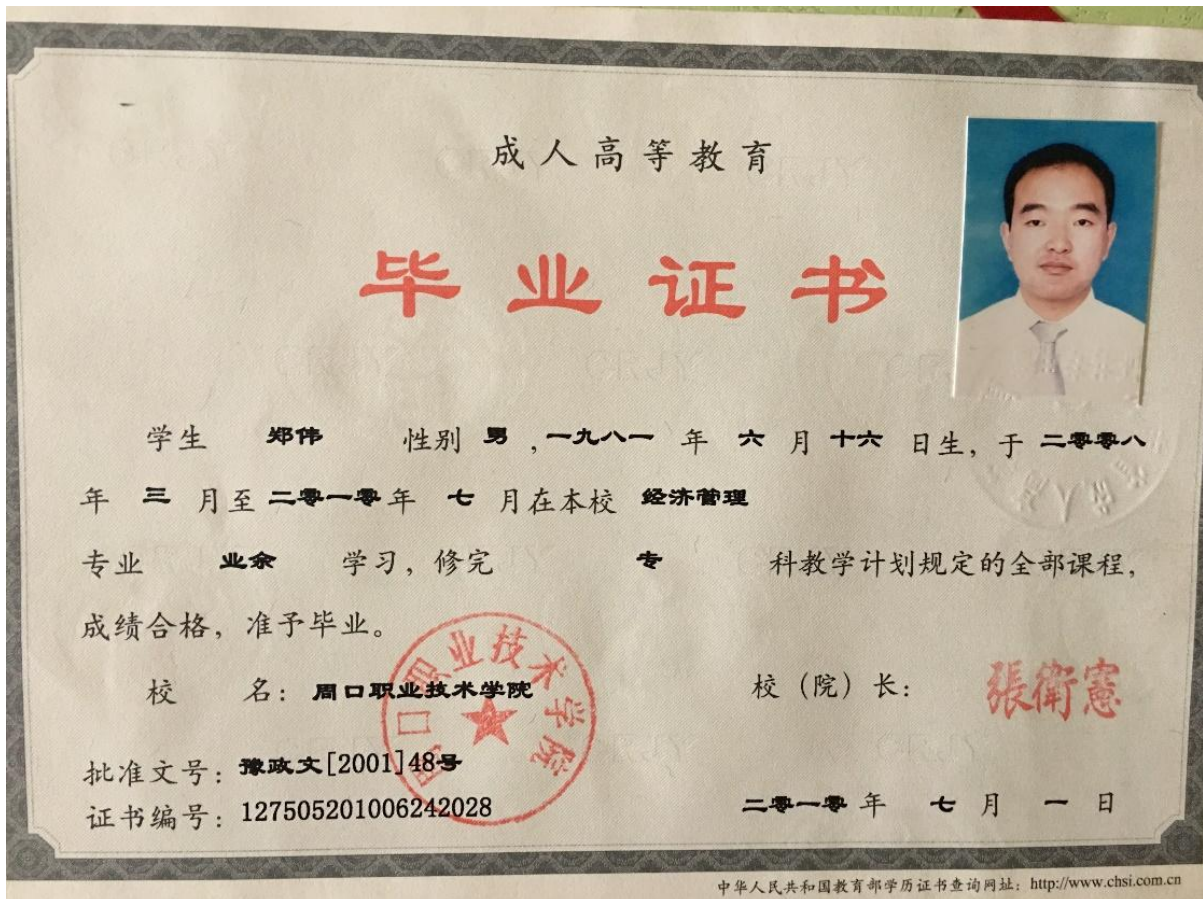 成人高等教育
毕业证书
学生 郑伟 性别 男 ,一九八一 年 六 月 十六 日生，于 二零零八
年 三 月至 二零一零 年 七 月在本校 经济管理
专业 业余 学习，修完 专 科教学计划规定的全部课程，
成绩合格，准予毕业。
校 名：周口职业技术学院
校（院）长：張衛憲
周口职业技术学院
批准文号：豫政文[2001]48号
证书编号：127505201006242028
二零一零 年 七 月 一 日
中华人民共和国教育部学历证书查询网址：http://www.chsi.com.cn